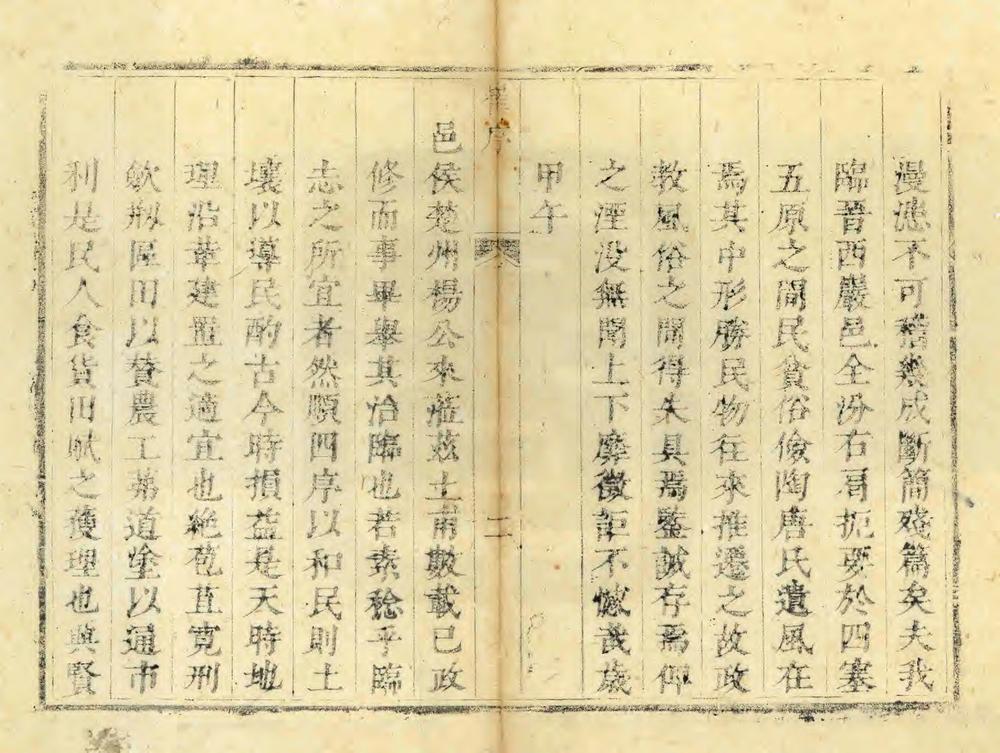 漫漶不可稽幾成斷簡殘篇矣夫我
臨晉西巖邑全汾右肩扼要於四塞
五原之間民貧俗儉陶唐氏遺風在
焉其中形勝民物往來推遷之故政
教風俗之閒得失具焉鑒誡存焉仰
之湮没無聞上下靡徵詎不慽哉歲
甲午
序
二
邑侯楚州楊公來蒞茲土甫數載已政
修而事畢舉其治臨也若素稔乎臨
志之所宜者然順四序以和民則土
壤以導民酌古今時損益是天時地
理沿革建置之適宜也絶苞苴寛刑
歛刱區田以賛農工茀道塗以通市
利是民人食貨田賦之獲理也與賢